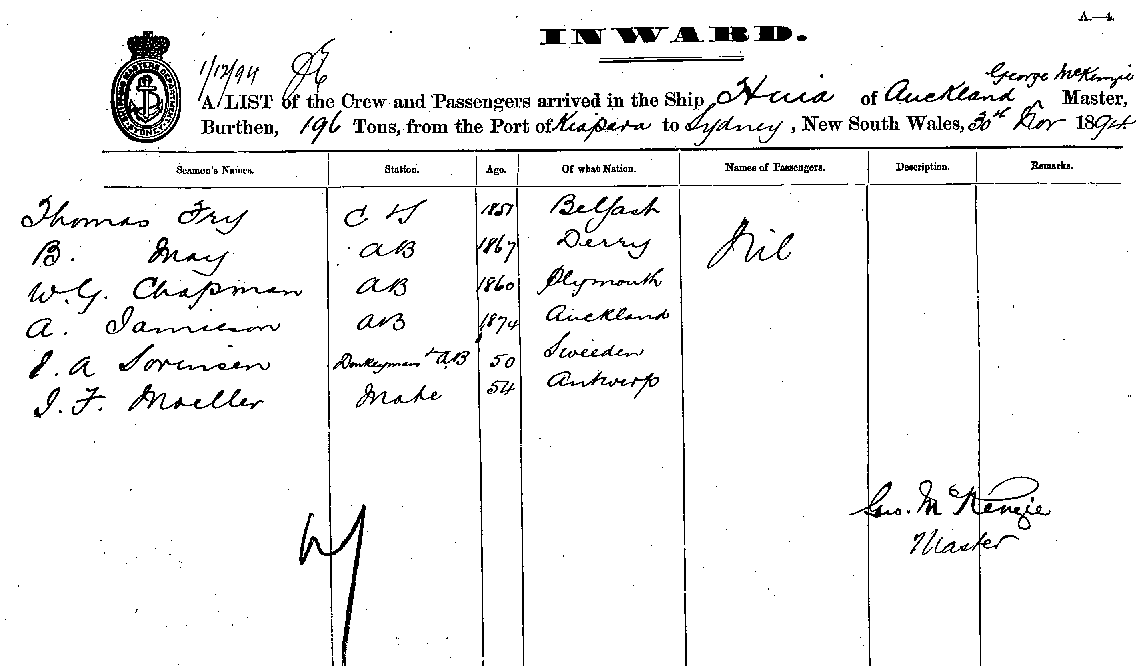 A.—4.
INWARD.
1/12/94
George McKenzie
A LIST of the Crew and Passengers arrived in the Ship Huia of Auckland Master,
Burthen, 196 Tons, from the Port of Kiapara to Sydney, New South Wales, 30th Nov 1894
SYDNEY
Seamen's Names. Station. Age. Of what Nation. Names of Passengers. Description. Remarks.
Thomas Fry C S 1851 Belfast
B. May AB 1867 Derry Nil
W.G. Chapman AB 1860 Plymouth
A. Jamieson AB 1874 Auckland
J. A Sorensen Donkeyman & AB 50 Sweeden
J. F. Moeller Mate 54 Antwerp
Geo. McKenzie
Master